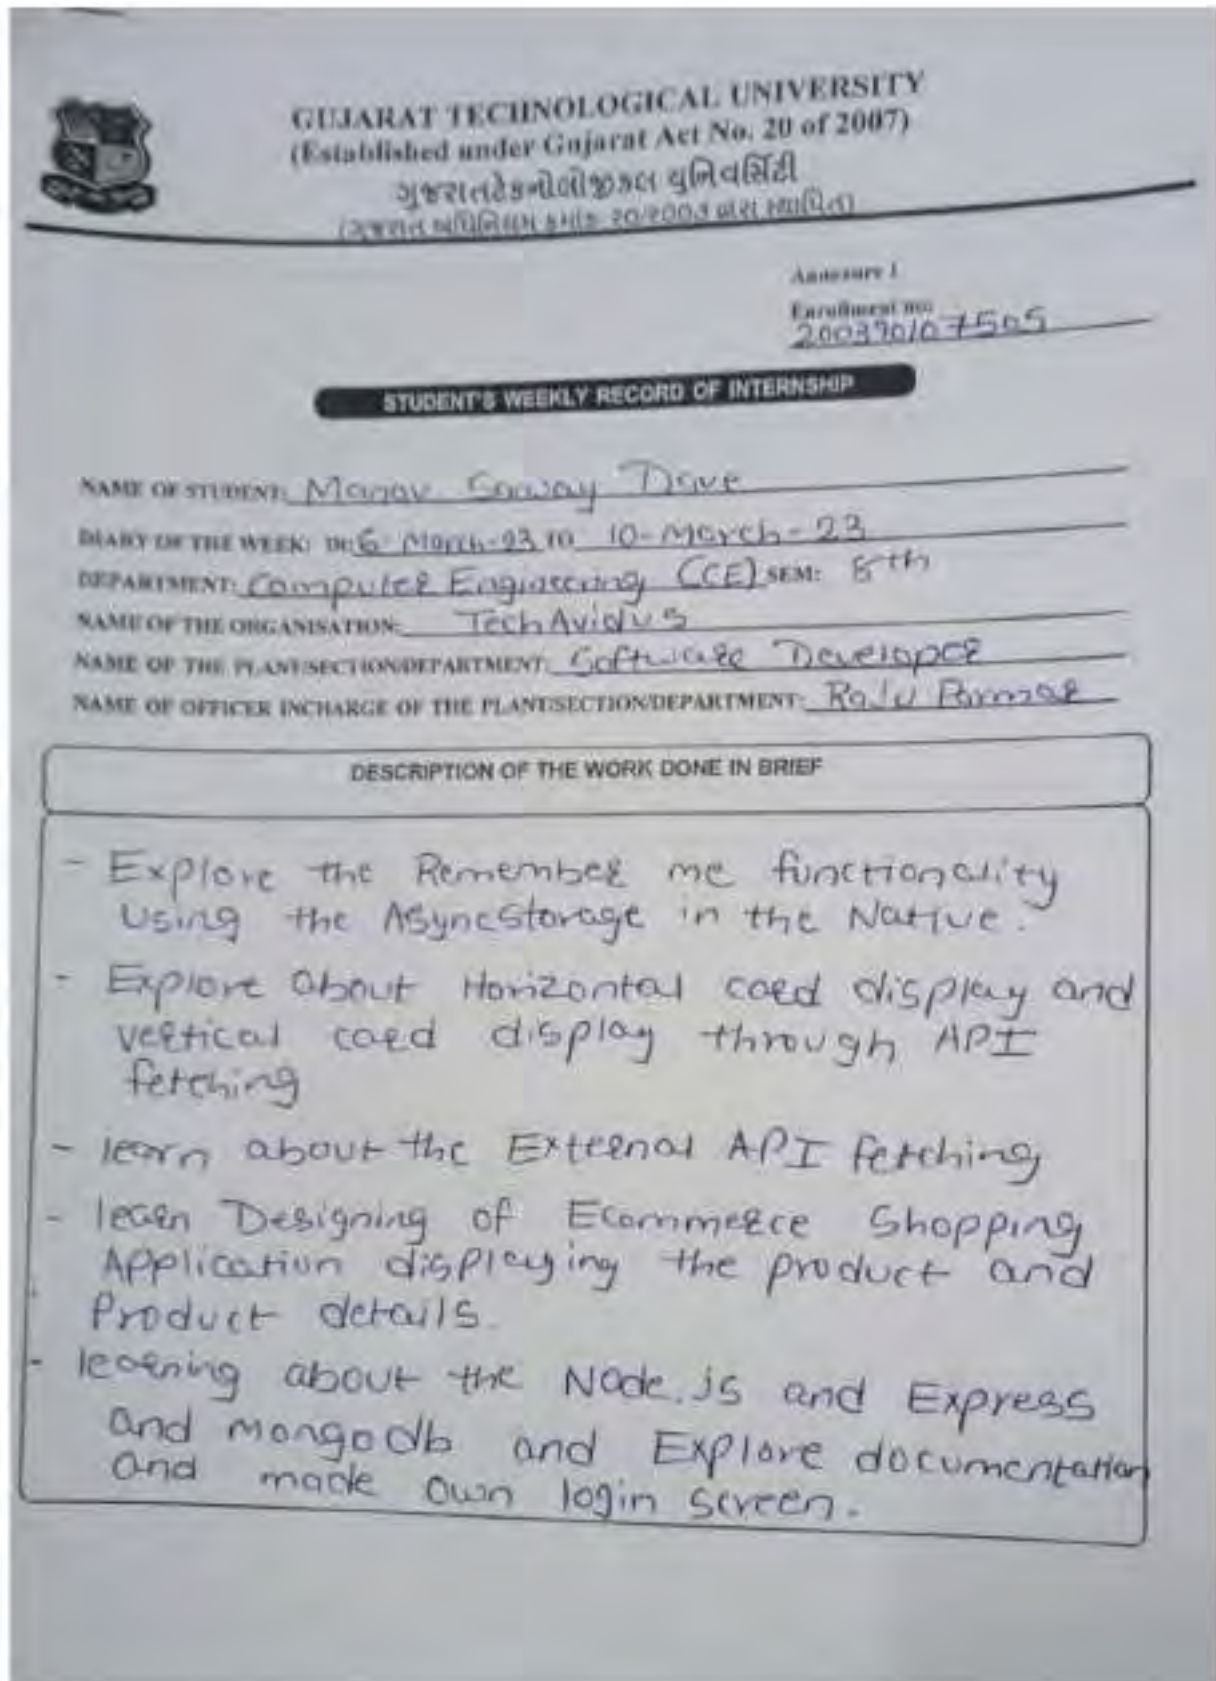 GUJARAT TECHNOLOGICAL UNIVERSITY
(Established under Gujarat Act No. 20 of 2007)
ગુજરાતટેકનોલોજીકલ યુનિવર્સિટી
(ગુજરાત અધિનિયમ ક્રમાંક: ૨૦/૨૦૦૭ દ્વારા સ્થાપિત)
Annexure 1
Enrollment no:
200390107505
STUDENT'S WEEKLY RECORD OF INTERNSHIP
NAME OF STUDENT: Manav Dave
DIARY OF THE WEEK: Dt: 6 March-23 TO 10-March-23
DEPARTMENT: Computer Engineering (CE) SEM: 8th
NAME OF THE ORGANISATION: TechAvidus
NAME OF THE PLANT/SECTION/DEPARTMENT: Software Developer
NAME OF OFFICER INCHARGE OF THE PLANT/SECTION/DEPARTMENT: Raju Parmar
DESCRIPTION OF THE WORK DONE IN BRIEF
- Explore the Remember me functionality
Using the AsyncStorage in the Native.
- Explore about Horizontal card display and
vertical card display through API
fetching
- learn about the External API fetching
- learn Designing of Ecommerce Shopping
Application displaying the product and
Product details.
- learning about the Node.js and Express
and mongodb and Explore documentation
and made own login screen.